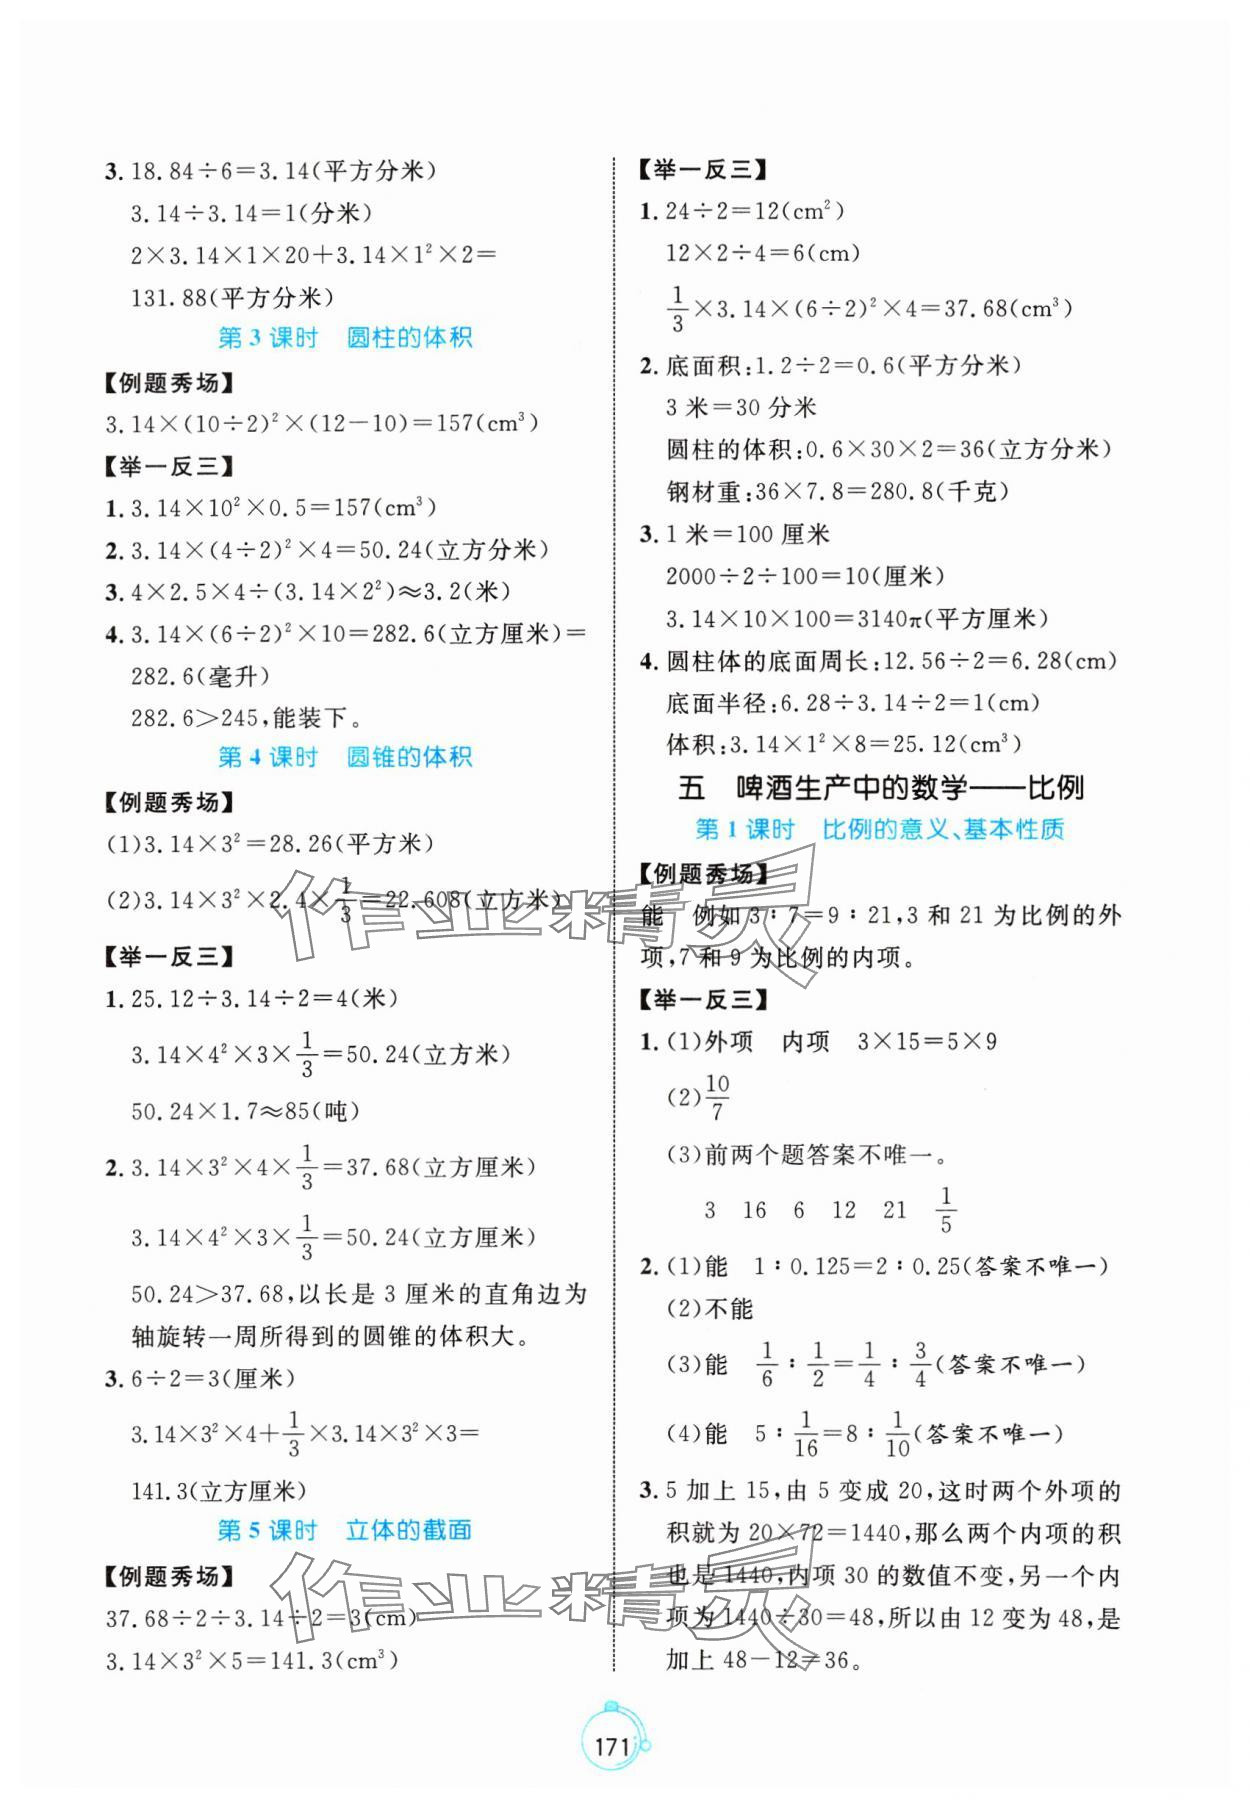 3. 18.84÷6=3.14(平方分米)
3.14÷3.14=1(分米)
2×3.14×1×20+3.14×1²×2=
131.88(平方分米)
第3课时 圆柱的体积
【例题秀场】
3.14×(10÷2)²×(12-10)=157(cm³)
【举一反三】
1. 3.14×10²×0.5=157(cm³)
2. 3.14×(4÷2)²×4=50.24(立方分米)
3. 4×2.5×4÷(3.14×2²)≈3.2(米)
4. 3.14×(6÷2)²×10=282.6(立方厘米)=
282.6(毫升)
282.6>245,能装下。
第4课时 圆锥的体积
【例题秀场】
(1)3.14×3²=28.26(平方米)
(2)3.14×3²×2.4×1/3=22.608(立方米)
【举一反三】
1. 25.12÷3.14÷2=4(米)
3.14×4²×3×1/3=50.24(立方米)
50.24×1.7≈85(吨)
2. 3.14×3²×4×1/3=37.68(立方厘米)
3.14×4²×3×1/3=50.24(立方厘米)
50.24>37.68,以长是3厘米的直角边为
轴旋转一周所得到的圆锥的体积大。
3. 6÷2=3(厘米)
3.14×3²×4+1/3×3.14×3²×3=
141.3(立方厘米)
第5课时 立体的截面
【例题秀场】
37.68÷2÷3.14÷2=3(cm)
3.14×3²×5=141.3(cm³)
【举一反三】
1. 24÷2=12(cm²)
12×2÷4=6(cm)
1/3×3.14×(6÷2)²×4=37.68(cm³)
2. 底面积:1.2÷2=0.6(平方分米)
3米=30分米
圆柱的体积:0.6×30×2=36(立方分米)
钢材重:36×7.8=280.8(千克)
3. 1米=100厘米
2000÷2÷100=10(厘米)
3.14×10×100=3140π(平方厘米)
4. 圆柱体的底面周长:12.56÷2=6.28(cm)
底面半径:6.28÷3.14÷2=1(cm)
体积:3.14×1²×8=25.12(cm³)
五 啤酒生产中的数学——比例
第1课时 比例的意义、基本性质
【例题秀场】
能 例如3∶7=9∶21,3和21为比例的外
项,7和9为比例的内项。
【举一反三】
1. (1)外项 内项 3×15=5×9
(2)10/7
(3)前两个题答案不唯一。
3 16 6 12 21 1/5
2. (1)能 1∶0.125=2∶0.25(答案不唯一)
(2)不能
(3)能 1/6∶1/2=1/4∶3/4(答案不唯一)
(4)能 5∶1/16=8∶1/10(答案不唯一)
3. 5加上15,由5变成20,这时两个外项的
积就为20×72=1440,那么两个内项的积
也是1440,内项30的数值不变,另一个内
项为1440÷30=48,所以由12变为48,是
加上48-12=36。
作业精灵
作业精灵
171